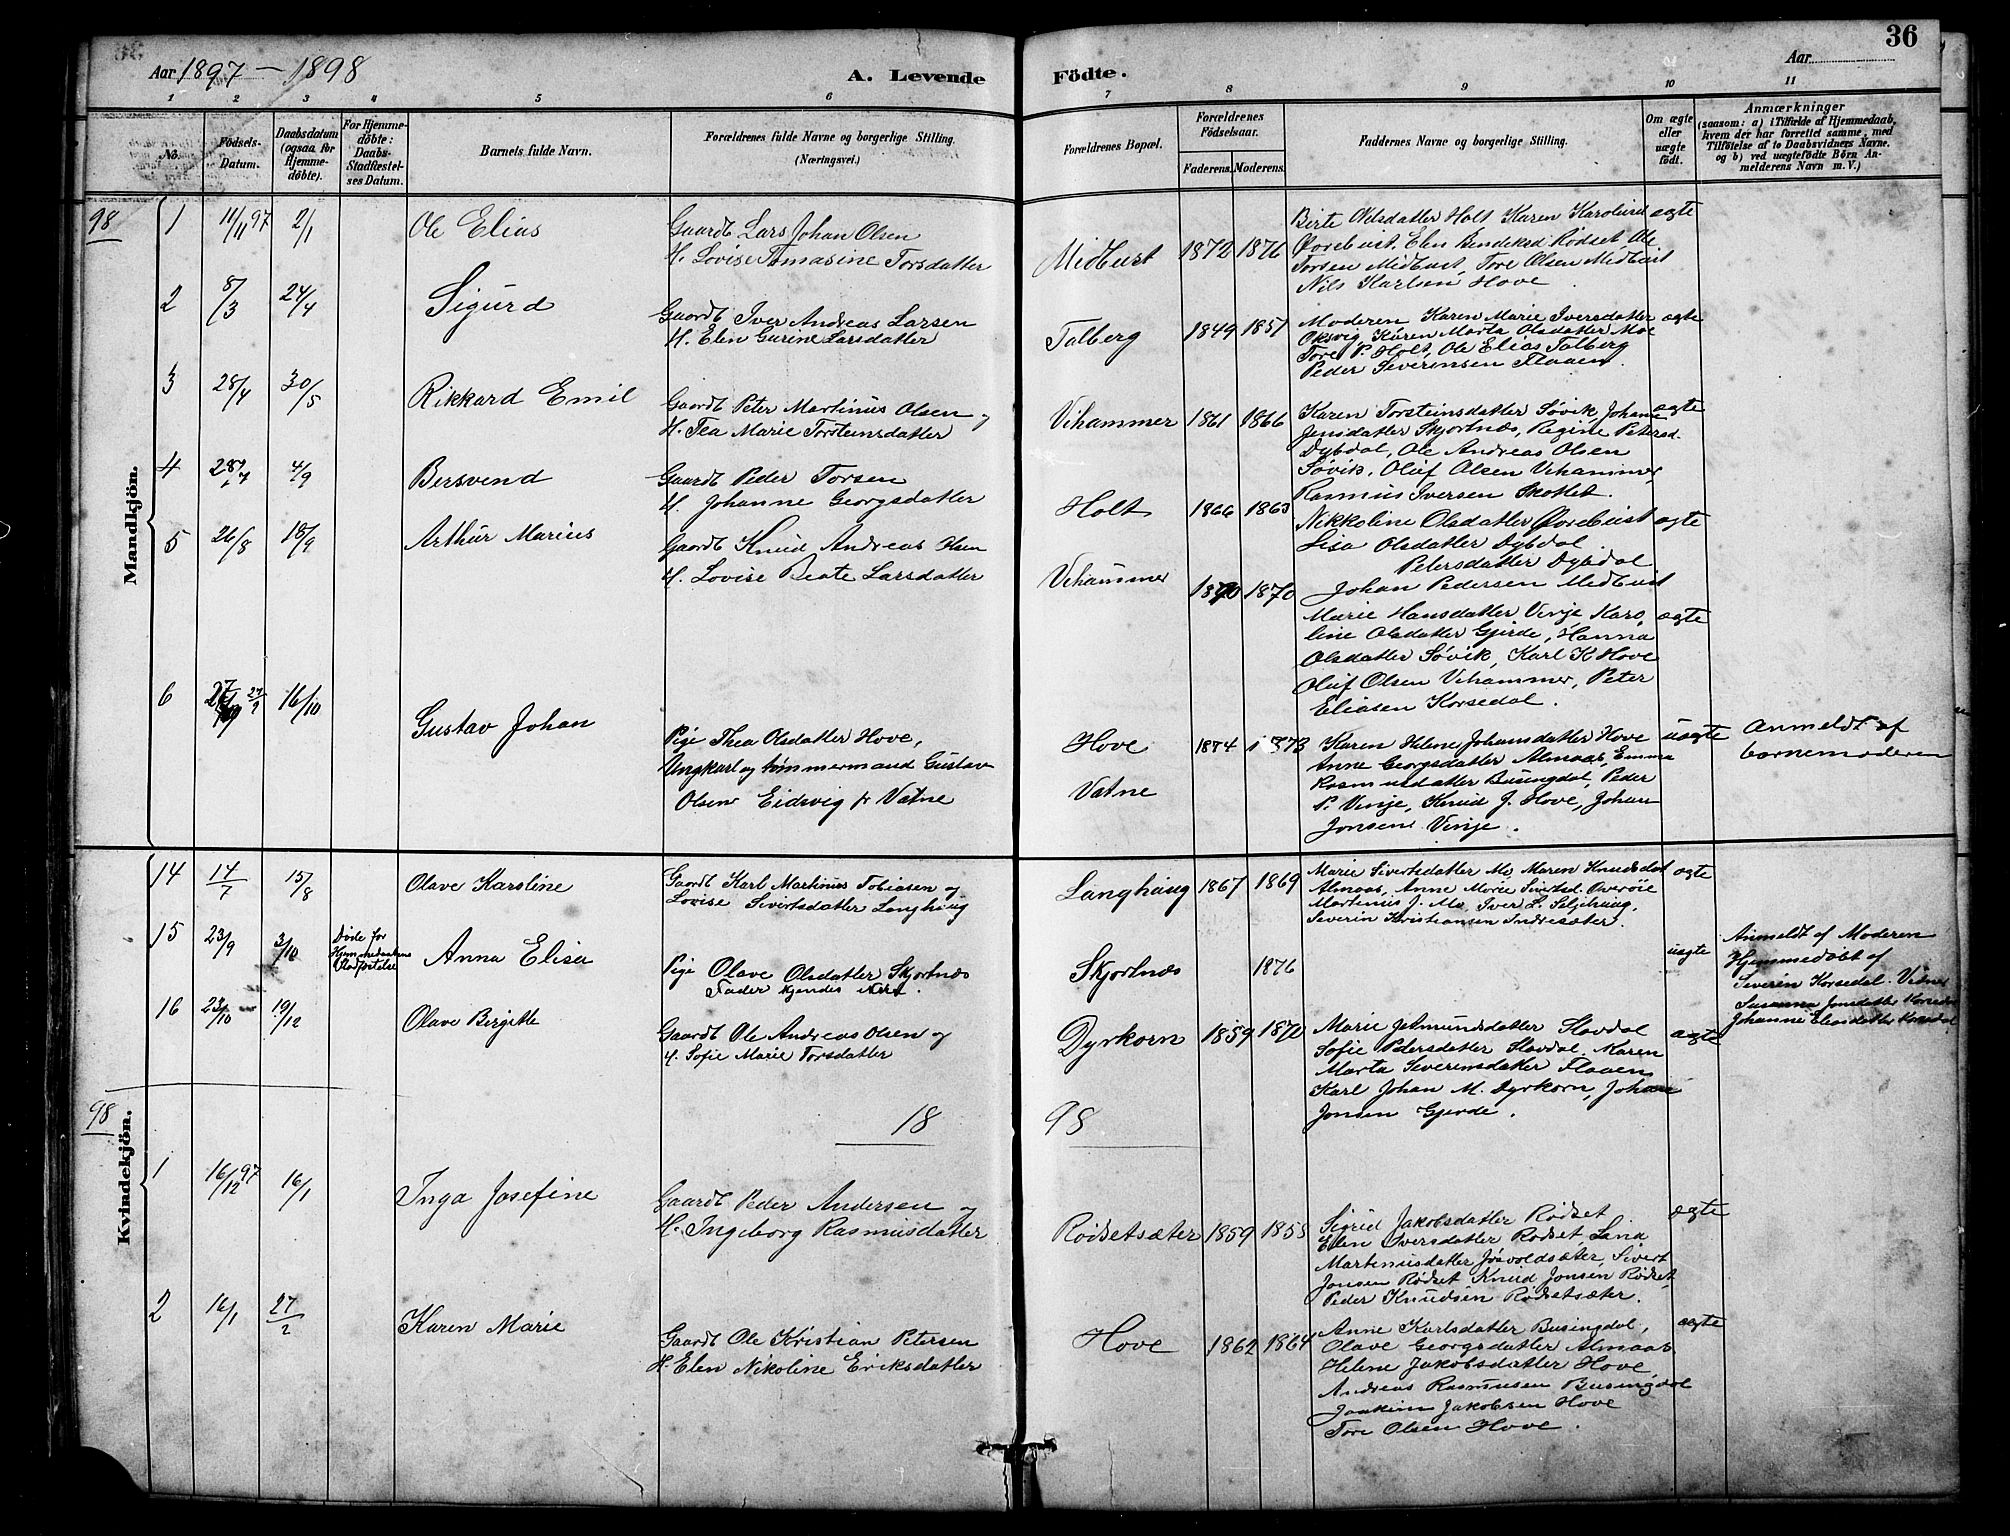 36
Aar 1897 – 1898
A. Levende
Födte.
Aar
1 2 3 4 5 6 7 8 9 10 11
No.
Födsels-Datum.
Daabsdatum (ogsaa for Hjemme-döbte).
For Hjemme-döbte: Daabs-Stadfæstel-ses Datum.
Barnets fulde Navn.
Forældrenes fulde Navne og borgerlige Stilling.
(Næringsvei.)
Forældrenes Bopæl.
Forældrenes Födselsaar.
Faderens. Moderens.
Faddernes Navne og borgerlige Stilling.
Om ægte eller uægte födt.
Anmærkninger
(saasom: a) i Tilfælde af Hjemmedaab,
hvem der har forrettet samme, med
Tilföielse af to Daabsvidners Navne.
og b) ved uægtefödte Börn An-
melderens Navn m. V.)
Mandkjön.
98
1 11/11 97 2/1 Ole Elias
Gaardb Lars Johan Olsen
H. Lovise Tomasine Torsdatter
Midtbust 1872 1876
Birte Nilsdatter Holt Karen
Elen Rødset, Ole
Torsen Midtbust, Tore Olsen Midtbust
Nils Karlsen Hove
ægte
2 8/3 24/4 Sigurd
Gaardb Iver Andreas Larsen
H. Elen Gurine Larsdatter
Talberg 1849 1851
Moderen Karen Marie Iversdatter
Oksvig, Karen Marta Olsdatter Moe
Tore P. Holt, Ole Elias Talberg
Peder Severinsen Flaaen
ægte
3 28/4 30/5 Rikkard Emil
Gaardb Peter Martinus Olsen og
H. Tea Marie Torsteinsdatter
Vihammer 1861 1866
Karen Torsteinsdatter Søvik, Johane
Jensdatter Skjortnæs, Regine Petersd.
Dybdal, Ole Andreas Olsen
Søvik, Oluf Olsen Vehammer,
Rasmus Iversen Skotlet.
ægte
4 28/7 4/9 Bersvend
Gaardb Peder Torsen
H. Johanne Georgsdatter
Holt 1866 1863
Nikkoline Olsdatter
Lisa Olsdatter Dybdal
Petersdatter Dybdal
Johan Pedersen Midtbust
ægte
5 26/8 18/9 Arthur Marius
Gaardb Knud Andreas Olsen
H. Lovise Beate Larsdatter
Vehammer 1870 1870
Marie Hansdatter Vinje, Karo,
line Olsdatter Gjerde, Hanna
Olsdatter Søvik, Karl K Hove
Oluf Olsen Vehammer, Peter
Eliasen Korsedal.
ægte
6 27/9 16/10 Gustav Johan
Pige Thea Olsdatter Hove,
Ungkarl og tømmermand Gustav
Olsen Eidsvig pr Vatne
Hove
Vatne
1874 1873
Karen Helene Johansdatter Hove
Anne Georgsdatter Almaas, Emma
Rasmusdatter Busengdal, Peder
P. Vinje, Knud J. Hove, Johan
Jonsen Vinje.
uægte
Anmeldt af
barnemoderen
Kvindekjön.
14 14/7 15/8 Olave Karoline
Gaardb Karl Martinus Tobiasen og
Lovise Sivertsdatter Langhaug
Langhaug 1867 1869
Marie Sivertsdatter Mo, Maren Knudsdat
Almaas, Anne Marie Sivertsd. Overøie
Martinus J. Mo, Iver L. Seljehaug,
Severin Kristiansen Indresæter.
ægte
15 23/9 3/10
Døde for
Hjemmedaabens
Stadfæstelse
Anna Elisa
Pige Olave Olsdatter Skjortnæs
Fader kjendes ikke.
Skjortnæs 1876
uægte
Anmeldt af Moderen
Hjemmedøbt af
Severin Korsedal. Vidner
Susanna Jonsdatter Korsedal
Johanne Eliasdatter Korsedal
16 23/10 19/12 Olave Birgitte
Gaardb Ole Andreas Olsen og
H. Sofie Marie Torsdatter
Dyrkorn 1859 1870
Marie Slavdal
Sofie Pedersdatter Slavdal. Karen
Marta Severinsdatter Flaaen
Karl Johan M. Dyrkorn, Johan
Jonsen Gjerde.
ægte
98
18
98
1 16/12 97 16/1 Inga Josefine
Gaardb Peder Andersen og
H. Ingeborg Rasmusdatter
Rødsetsæter 1859 1858
Sigrid Jakobsdatter Rødset
Elen Iversdatter Rødset, Lana
Martinusdatter, Sivert
Jonsen Rødset Knud Jonsen Rødset
Peder Knudsen Rødsetsæter.
ægte
2 16/1 27/2 Karen Marie
Gaardb Ole Kristian Petersen
H. Elen Nikoline Eriksdatter
Hove 1862 1864
Anne Karlsdatter Busingdal,
Olave Georgsdatter Almaas
Helene Jakobsdatter Hove
Andreas Rasmusen Busingdal
Joakim Jakobsen Hove
Tore Olsen Hove.
ægte